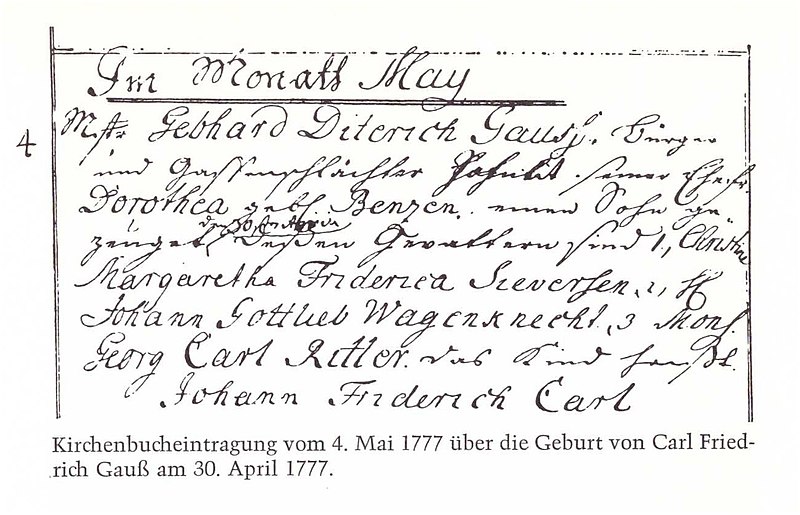 Im Monath May
4 Mstr Gebhard Diterich Gauss, bürger
und Gassenschlächter hat mit seiner Ehefr.
Dorothea gebh Benzen. einen Sohn ge-
den 30
zeuget, deßen Gevattern sind 1, Christine
Margaretha Friderica Sieversen, 2, H
Johann Gottlieb Wagenknecht, 3 Mons.
Georg Carl Ritter. das Kind heißt.
Johann Friderich Carl
Kirchenbucheintragung vom 4. Mai 1777 über die Geburt von Carl Fried-
rich Gauß am 30. April 1777.